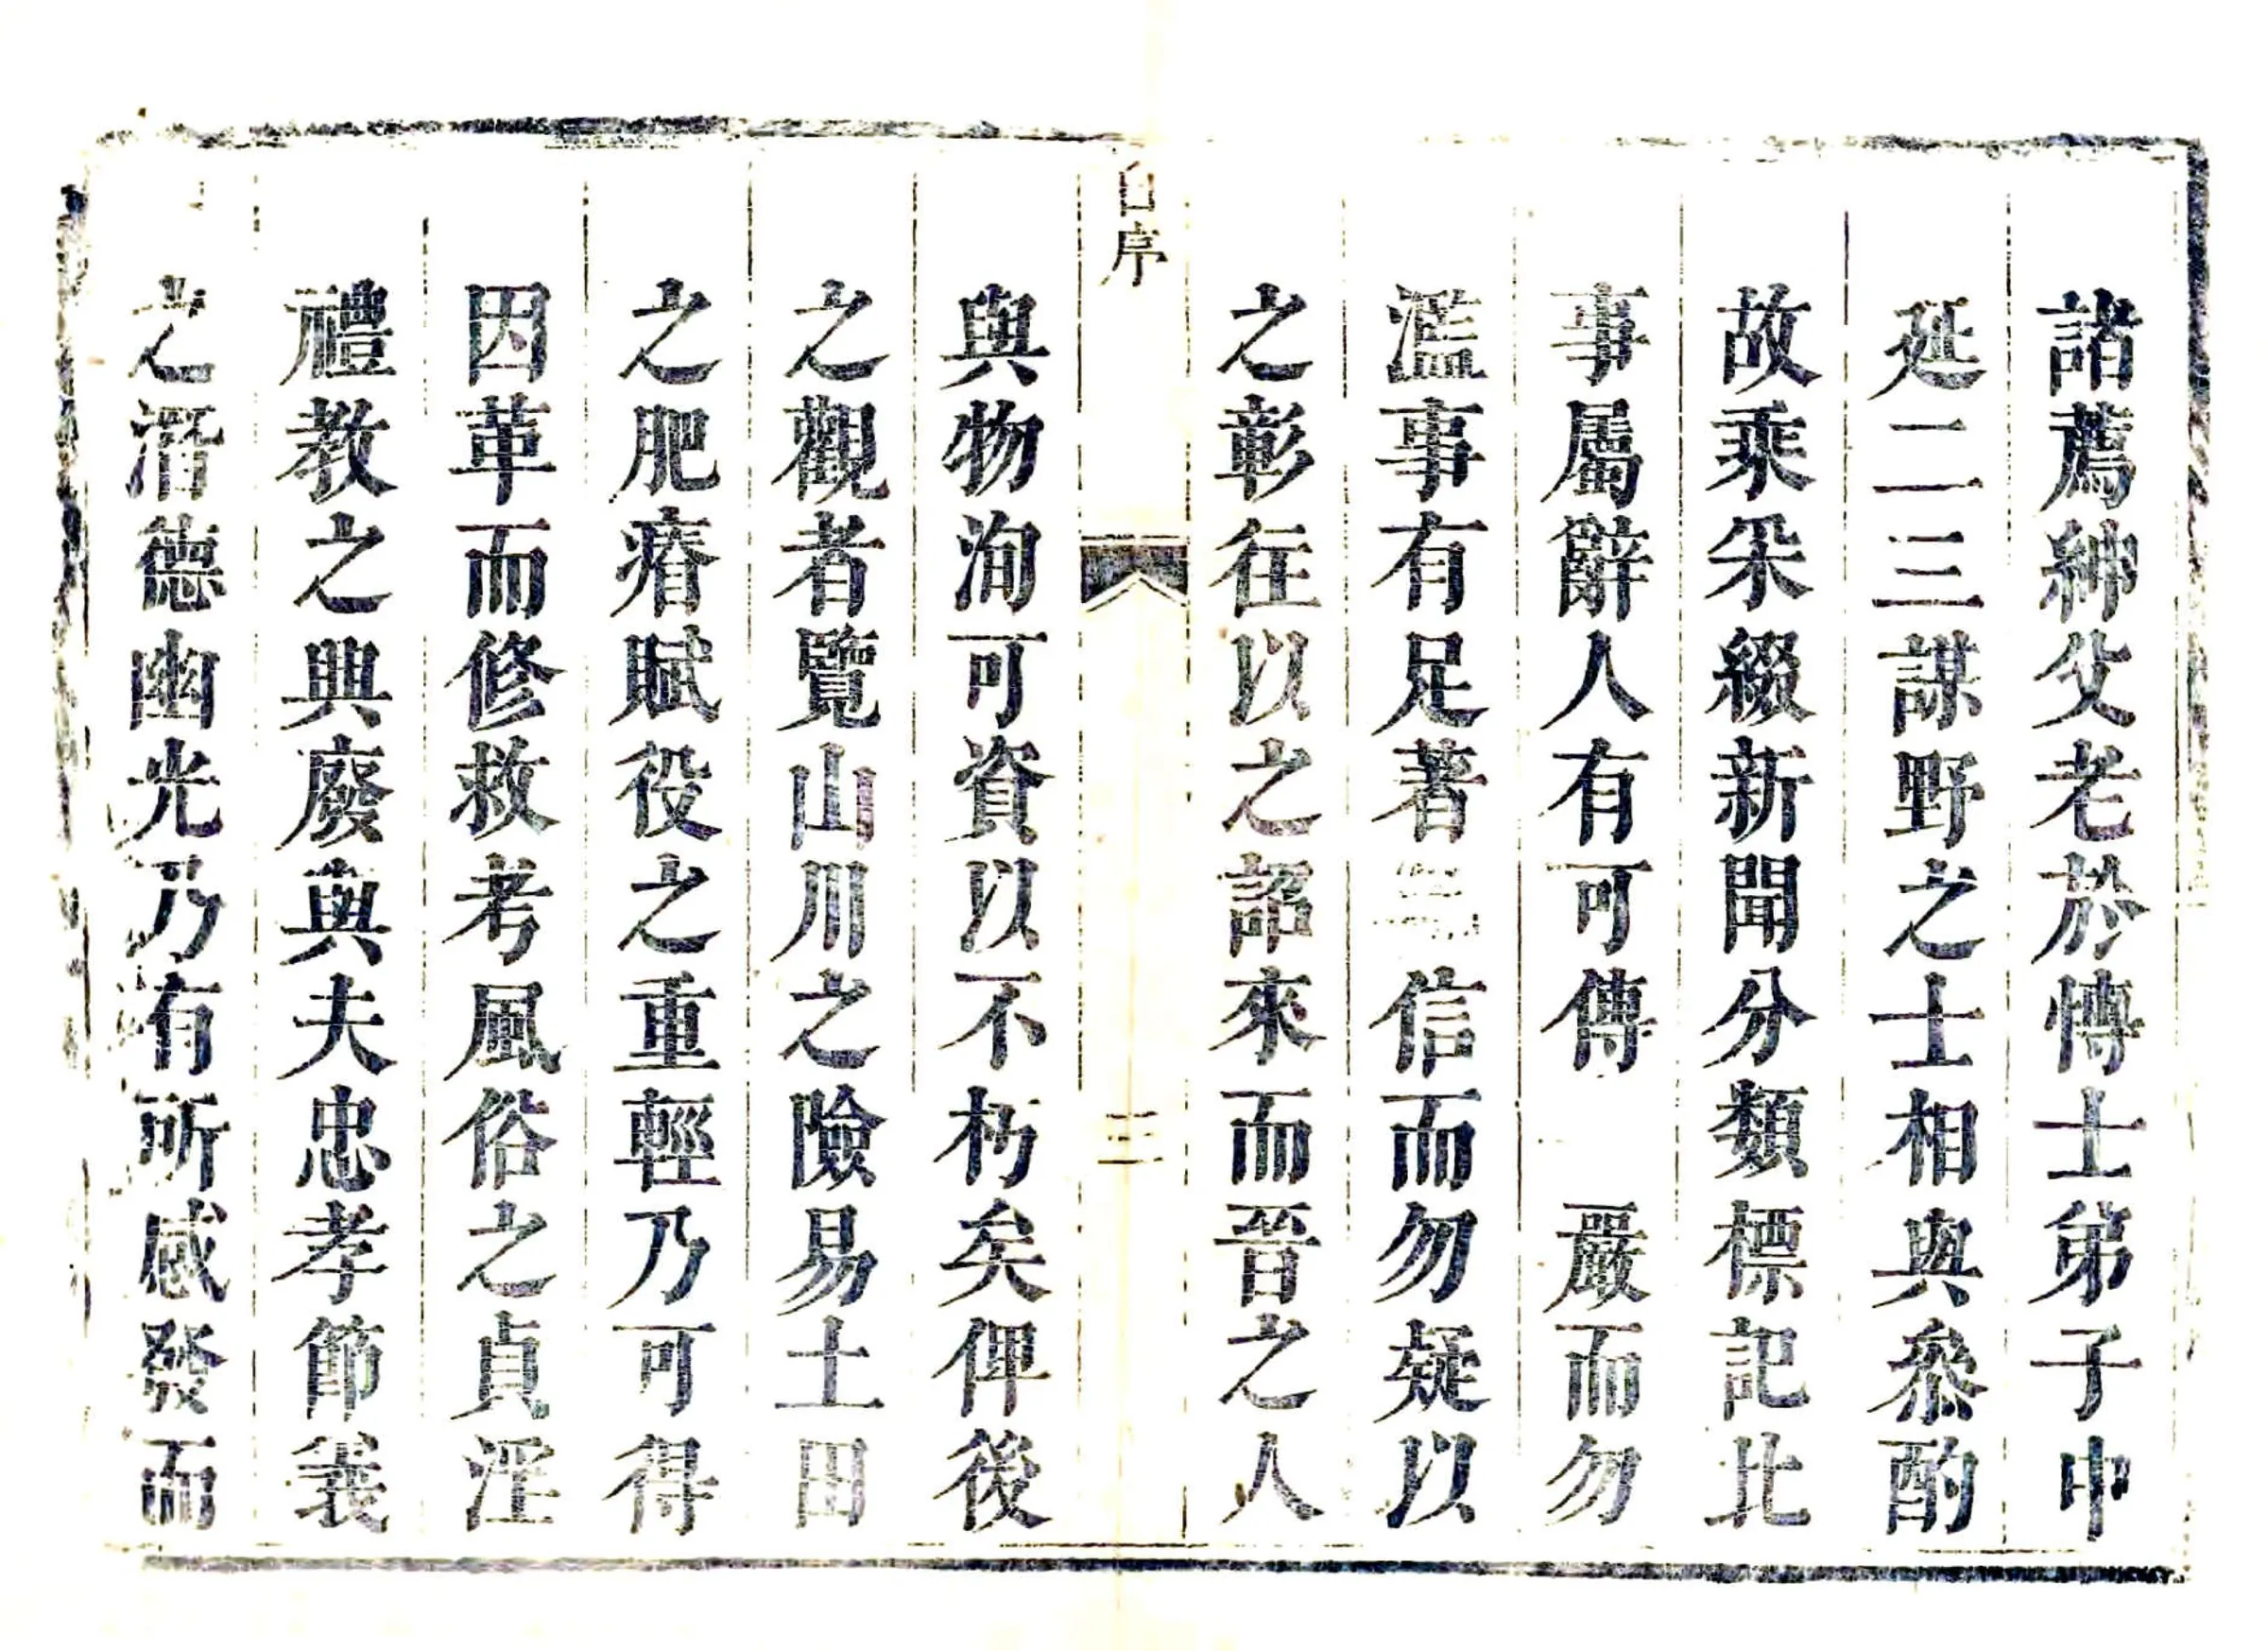 諸薦紳父老於博士弟子中
延二三謀野之士相與叅酌
故乘采綴新聞分類標記比
事屬辭人有可傳嚴而勿
濫事有足著信而勿疑以
之彰徃以之詔來而晉之人
自序
三
與物洵可資以不朽矣俾後
之觀者覽山川之險易土田
之肥瘠賦役之重輕乃可得
因革而修救考風俗之貞淫
禮教之興廢與夫忠孝節義
之潛德幽光乃有所感發而